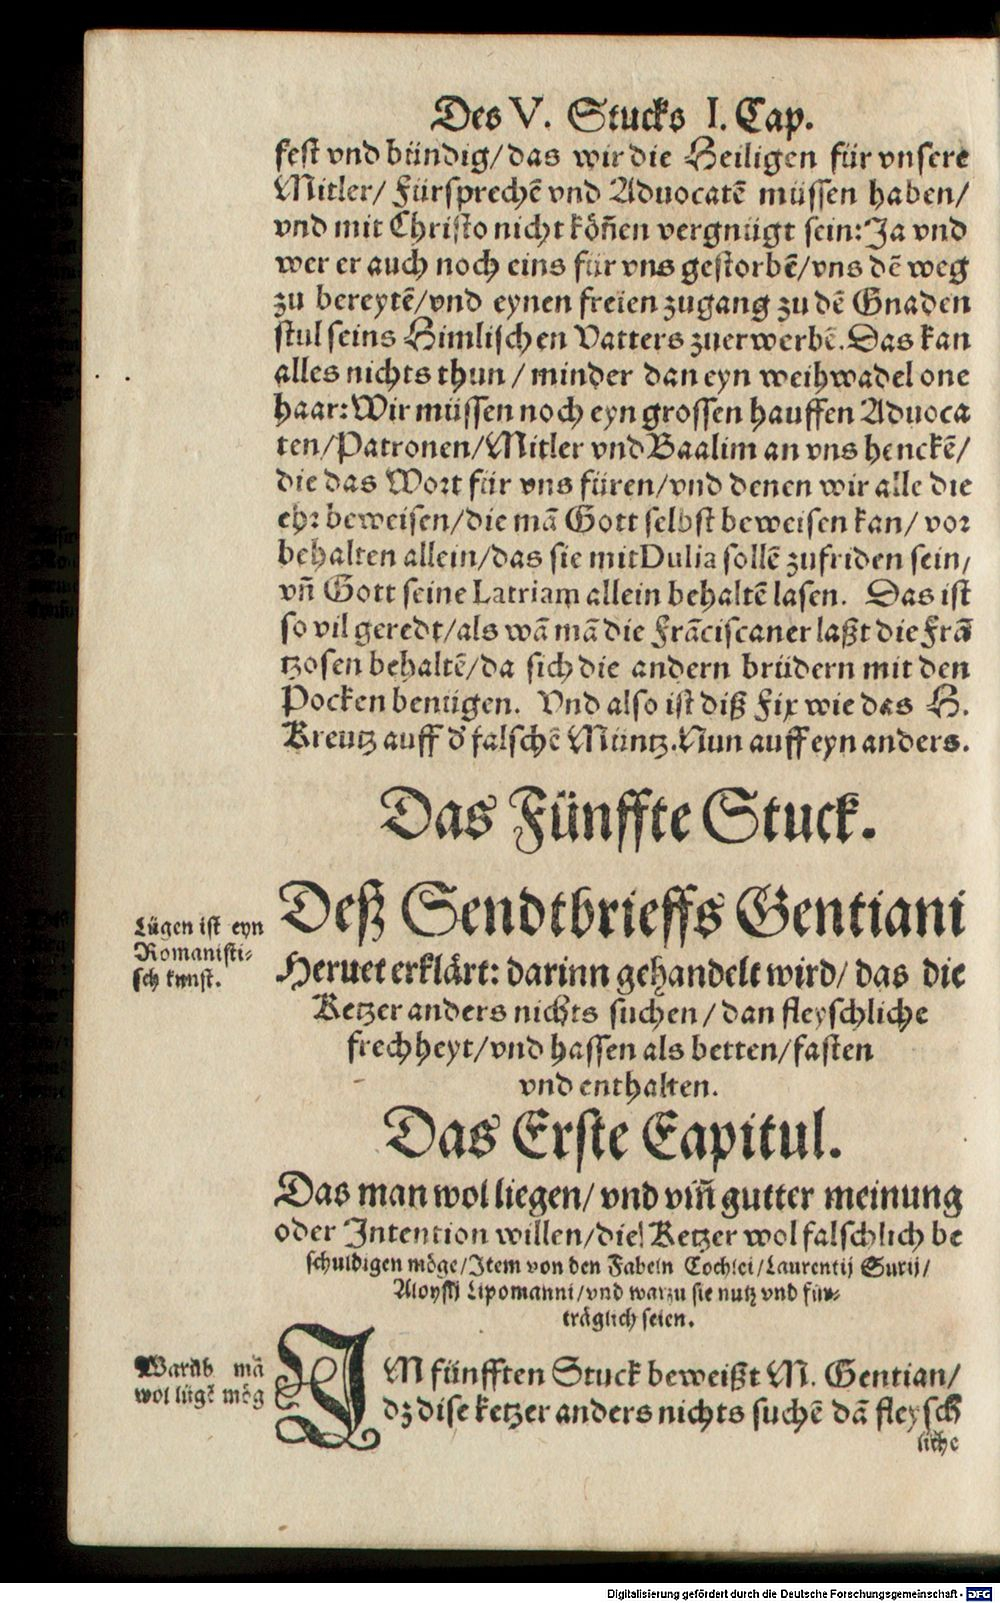 Des V. Stucks I. Cap.
fest vnd bündig/das wir die Heiligen für vnsere
Mitler/ Fürsprechē vnd Aduocatē müssen haben/
vnd mit Christo nicht köñen vergnügt sein: Ja vnd
wer er auch noch eins für vns gestorbē/vns dē weg
zu bereytē/vnd eynen freien zugang zu dē Gnaden
stul seins Himlischen Vatters zuerwerbē. Das kan
alles nichts thun / minder dan eyn weihwadel one
haar: Wir müssen noch eyn grossen hauffen Aduoca
ten/Patronen/Mitler vnd Baalim an vns henckē/
die das Wort für vns füren/vnd denen wir alle die
ehr beweisen/die mā Gott selbst beweisen kan/ vor
behalten allein/das sie mit Dulia sollē zufriden sein/
vñ Gott seine Latriam allein behaltē lasen. Das ist
so vil geredt/als wā mā die Frāciscaner laßt die Frā
tzosen behaltē/da sich die andern brüdern mit den
Pocken benügen. Vnd also ist diß Fix wie das H.
Kreutz auff d' falschē Müntz. Nun auff eyn anders.
Das Fünffte Stuck.
Deß Sendtbrieffs Gentiani
Heruet erklärt: darinn gehandelt wird/ das die
Ketzer anders nichts suchen / dan fleyschliche
frechheyt/vnd hassen als betten/fasten
vnd enthalten.
Lügen ist eyn
Romanisti-
sch kunst.
Das Erste Capitul.
Das man wol liegen/ vnd vm̃ gutter meinung
oder Intention willen/die Ketzer wol falschlich be
schuldigen möge/Item von den Fabeln Cochlei/Laurentij Surij/
Aloysij Lipomanni/vnd warzu sie nutz vnd für-
träglich seien.
Warūb mā
wol lügē mög
IM fünfften Stuck beweißt M. Gentian/
dz dise ketzer anders nichts suchē dā fleysch
liche
Digitalisierung gefördert durch die Deutsche Forschungsgemeinschaft - DFG